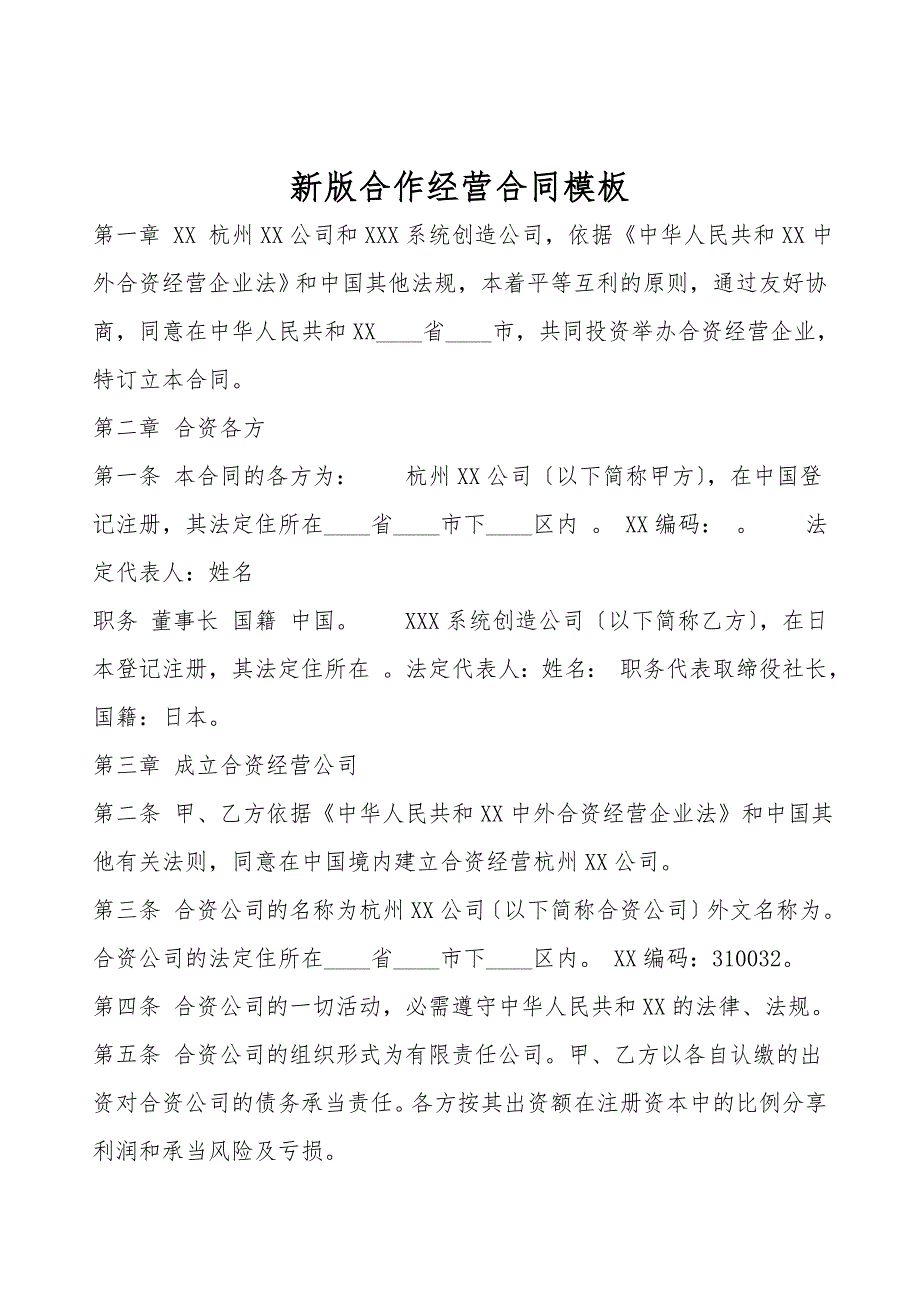 新版合作经营合同模板
第一章 XX 杭州 XX 公司和 XXX 系统创造公司，依据《中华人民共和 XX 中
外合资经营企业法》和中国其他法规，本着平等互利的原则，通过友好协
商，同意在中华人民共和 XX____省____市，共同投资举办合资经营企业，
特订立本合同。
第二章 合资各方
第一条 本合同的各方为： 杭州 XX 公司〔以下简称甲方〕，在中国登
记注册，其法定住所在____省____市下____区内 。 XX 编码： 。 法
定代表人：姓名
职务 董事长 国籍 中国。 XXX 系统创造公司〔以下简称乙方〕，在日
本登记注册，其法定住所在 。法定代表人：姓名： 职务代表取缔役社长，
国籍：日本。
第三章 成立合资经营公司
第二条 甲、乙方依据《中华人民共和 XX 中外合资经营企业法》和中国其
他有关法则，同意在中国境内建立合资经营杭州 XX 公司。
第三条 合资公司的名称为杭州 XX 公司〔以下简称合资公司〕外文名称为。
合资公司的法定住所在____省____市下____区内。 XX 编码：310032。
第四条 合资公司的一切活动，必需遵守中华人民共和 XX 的法律、法规。
第五条 合资公司的组织形式为有限责任公司。甲、乙方以各自认缴的出
资对合资公司的债务承当责任。各方按其出资额在注册资本中的比例分享
利润和承当风险及亏损。